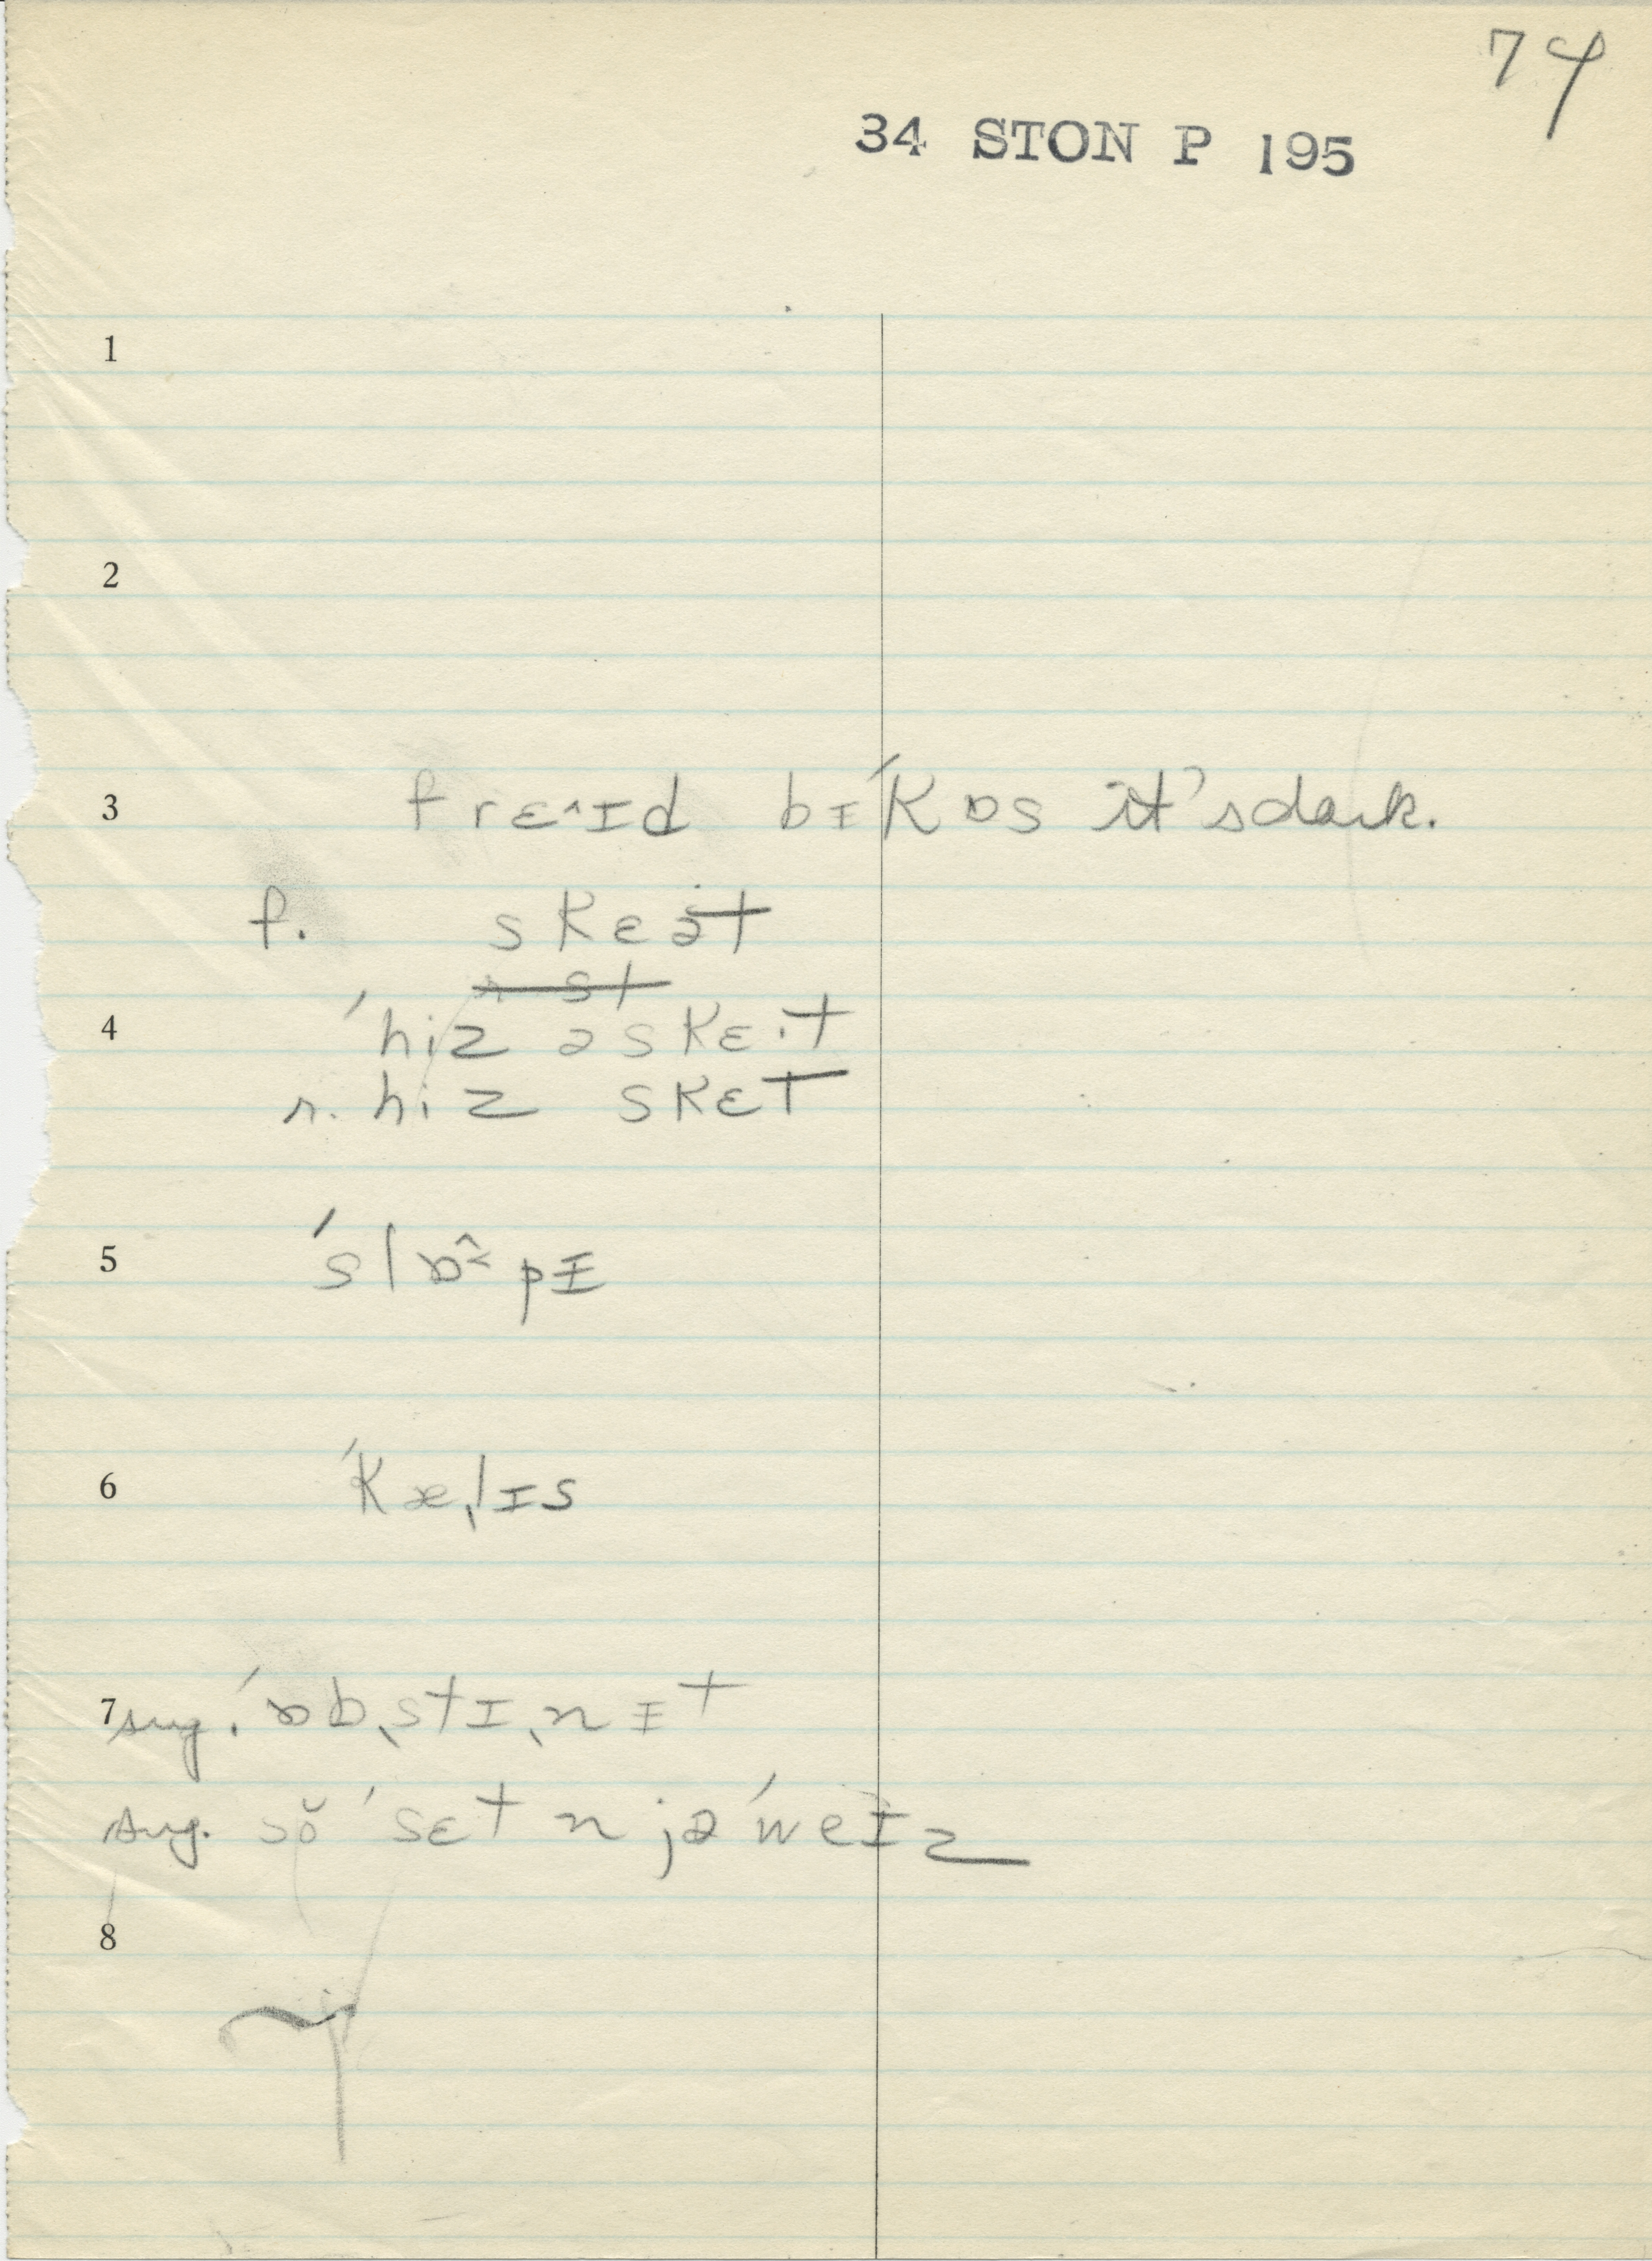 74
34 STON P 195
1
2
3 frɛ^ɪd bɪ'kɒs it's dark.
f. skɛət
4 'hiz əskɛ·t
r. hiz skɛt
5 'slɒ^<pɪ
6 'kæˌlɪs
7 sug. 'ɒbˌstɪˌnɪt
sug. sŏ 'sɛt n jə 'weɪz
8